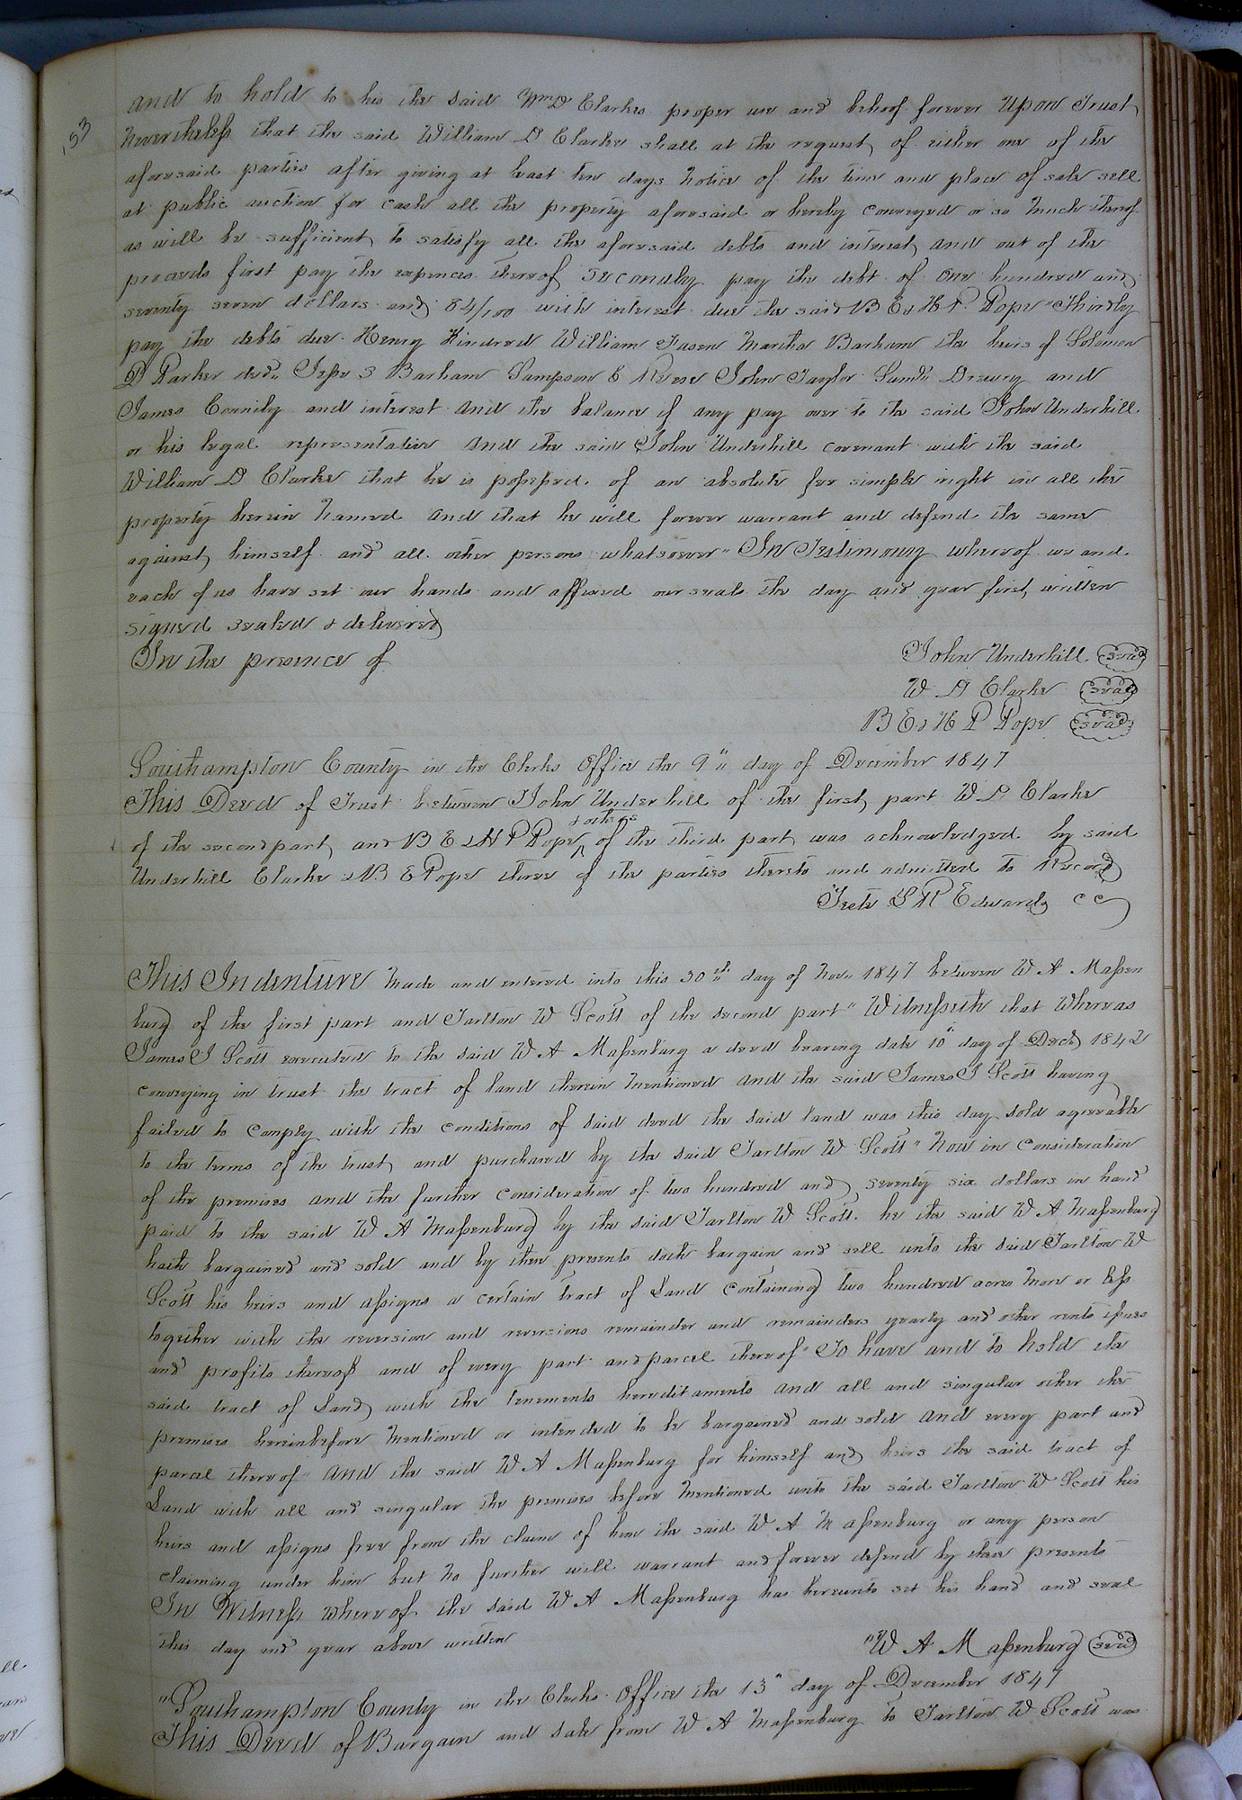 153
and to hold to his the said Wm D Clarkes proper use and behoof forever Upon Trust
Nevertheless that the said William D Clarke shall at the request of either one of the
aforesaid parties after giving at least ten days notice of the time and place of sale sell
at public auction for cash all the property aforesaid or hereby conveyed or so much thereof
as will be sufficient to satisfy all the aforesaid debts and interest and out of the
proceeds first pay the expences thereof Secondly pay the debt of One hundred and
seventy seven dollars and 84/100 with interest due the said B E & H P Pope "Thirdly
pay the debts due Henry Kindred William Jason Martha Barham the heirs of Solomon
D Parker decd. Jesse S Barham Sampson C Reese John Taylor Saml. Drewry and
James and interest and the balance if any pay over to the said John Underhill
or his legal representative and the said John Underhill covenant with the said
William D Clarke that he is possessed of an absolute fee simple right in all the
property herein named and that he will forever warrant and defend the same
against himself and all other persons whatsoever" In Testimony whereof we and
each of us have set our hands and affixed our seals the day and year first written
signed sealed & delivered
In the presence of
John Underhill seal
W D Clarke seal
B E & H P Pope seal
Southampton County in the Clerks Office the 9" day of December 1847
This Deed of Trust between John Underhill of the first part W D Clarke
& others
of the second part and B E & H P Pope ^ of the third part was acknowledged by said
Underhill Clarke & B E Pope three of the parties thereto and admitted to Record
Teste L R Edwards CC
This Indenture made and entered into this 30th day of Nov. 1847 between W A Massen
burg of the first part and Tarlton W Scott of the second part" Witnesseth that Whereas
James J Scott executed to the said W A Massenburg a deed bearing date 10" day of Decr 1842
conveying in trust the tract of land therein mentioned and the said James J Scott having
failed to comply with the conditions of said deed the said land was this day sold agreeable
to the terms of the trust and purchased by the said Tarlton W Scott" Now in consideration
of the premises and the further consideration of two hundred and seventy six dollars in hand
paid to the said W A Massenburg by the said Tarlton W Scott he the said W A Massenburg
hath bargained and sold and by these presents doth bargain and sell unto the said Tarlton W
Scott his heirs and assigns a certain tract of Land containing two hundred acres more or less
together with the reversion and reversions remainder and remainders yearly and other rents issues
and profits thereof and of every part and parcel thereof" To have and to hold the
said tract of Land with the tenements hereditaments and all and singular other the
premises hereinbefore mentioned or intended to be bargained and sold and every part and
parcel thereof" And the said W A Massenburg for himself and heirs the said tract of
Land with all and singular the premises before mentioned unto the said Tarlton W Scott his
heirs and assigns free from the claim of him the said W A Massenburg or any person
claiming under him but no further will warrant and forever defend by these presents
In Witness whereof the said W A Massenburg has hereunto set his hand and seal
this day and year above written
"W A Massenburg seal
"Southampton County in the Clerks Office the 13" day of December 1847
This Deed of Bargain and Sale from W A Massenburg to Tarlton W Scott was